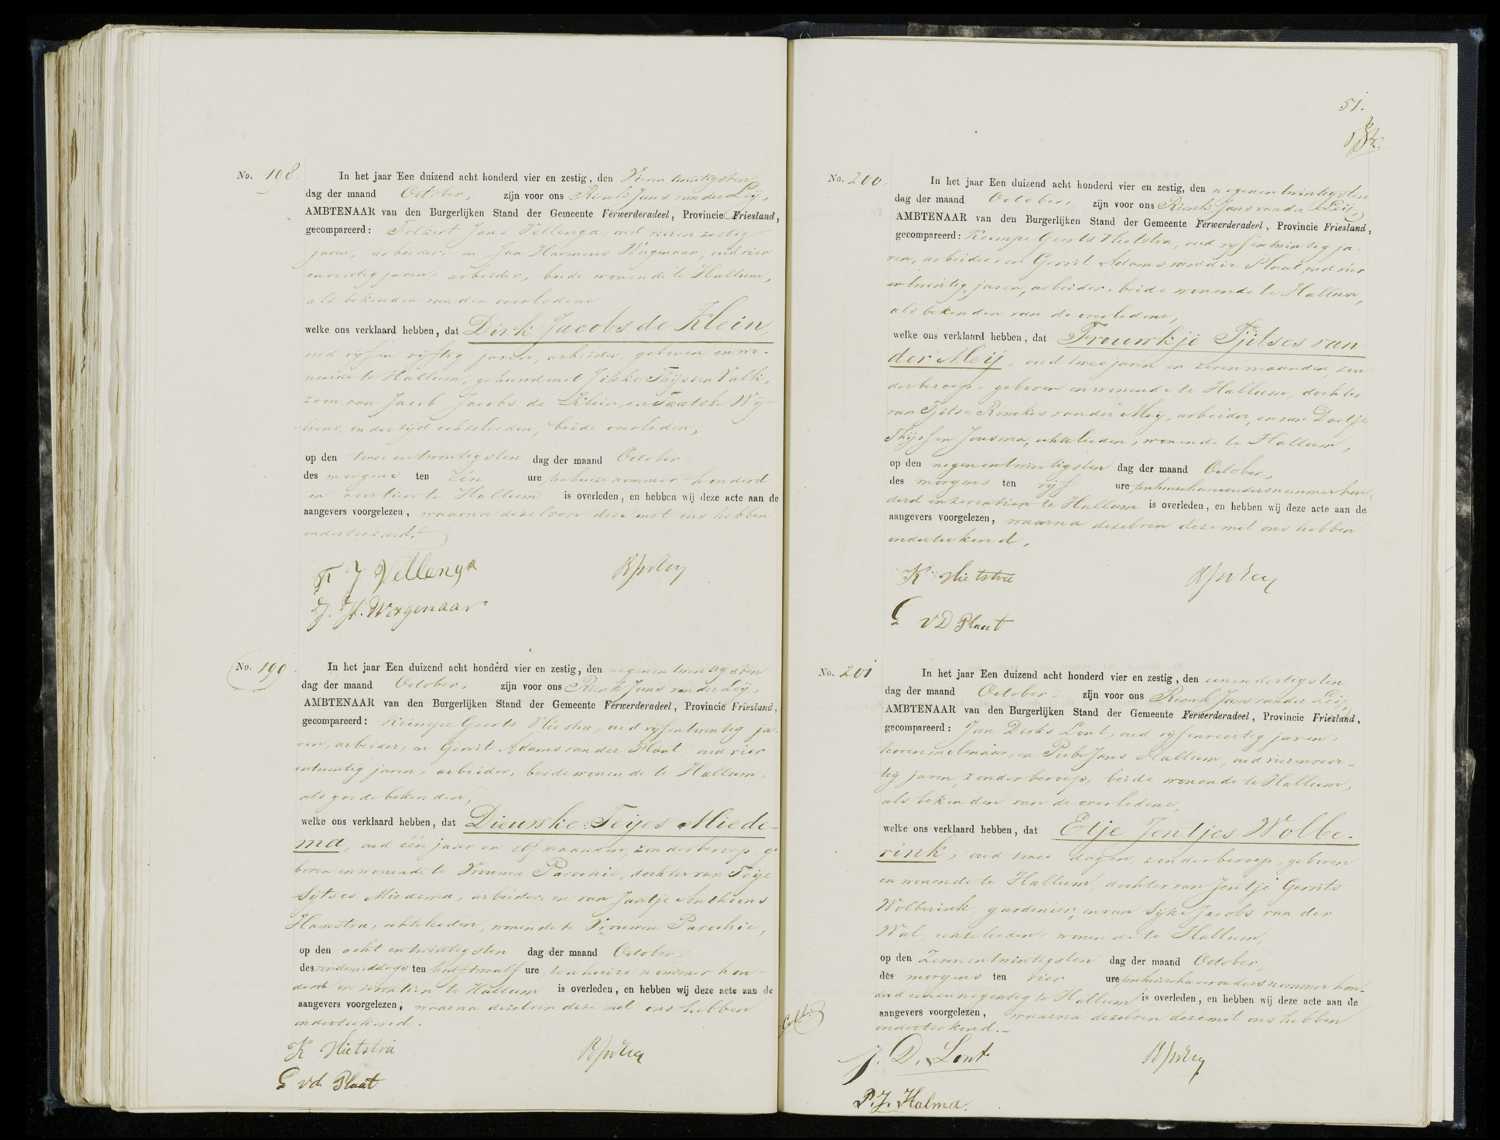 No. 198 In het jaar Een duizend acht honderd vier en zestig, den
dag der maand October, zijn voor ons Rienk Jans van der Leij,
AMBTENAAR van den Burgerlijken Stand der Gemeente Ferwerderadeel, Provincie Friesland,
gecompareerd: Jans Vellenga, oud
jaren, arbeider, en Jan Harmens Wagenaar, oud vier
en veertig jaren, arbeider, beide wonende te Hallum,
als bekenden van den overledene
welke ons verklaard hebben, dat Dirk Jacobs de Klein
oud vijf en vijftig jaren, arbeider, geboren en wo-
nende te Hallum, gehuwd met
zoon van Jacob Jacobs de Klein, en Taatske Wy-
in der tijd echtelieden, beide overleden,
op den twee en twintigsten dag der maand October
des morgens ten één ure ten huize nommer honderd
en te Hallum is overleden, en hebben wij deze acte aan de
aangevers voorgelezen, waarna dezelven deze met ons hebben
onderteekend.
F J Vellenga RJvdLey
J. H. Wagenaar
No. 199 In het jaar Een duizend acht honderd vier en zestig, den negen en twintigsten
dag der maand October, zijn voor ons Rienk Jans van der Leij,
AMBTENAAR van den Burgerlijken Stand der Gemeente Ferwerderadeel, Provincie Friesland,
gecompareerd: Keimpe Geerts Hietstra, oud vijf en twintig ja-
ren, arbeider, en Gerrit Adams van der Plaat oud vier
en twintig jaren, arbeider, beide wonende te Hallum,
als goede bekenden,
welke ons verklaard hebben, dat Dieuwke Feijes Miede-
ma, oud één jaar en elf maanden, zonder beroep, ge-
boren en wonende te Vrouwen Parochie, dochter van Feije
Sijtses Miedema, arbeider, en van Jantje Anthens
Haanstra, echtelieden, wonende te Vrouwen Parochie,
op den acht en twintigsten dag der maand October
des voormiddags ten half twaalf ure ten huize nommer hon-
derd en te Hallum is overleden, en hebben wij deze acte aan de
aangevers voorgelezen, waarna dezelven deze met ons hebben
onderteekend.
K Hietstra RJvdLey
G vd Plaat
51.
No. 200 In het jaar Een duizend acht honderd vier en zestig, den negen en twintigsten
dag der maand October, zijn voor ons Rienk Jans van der Leij,
AMBTENAAR van den Burgerlijken Stand der Gemeente Ferwerderadeel, Provincie Friesland,
gecompareerd: Keimpe Geerts Hietstra, oud vijf en twintig ja-
ren, arbeider en Gerrit Adams van der Plaat, oud vier
en twintig jaren, arbeider, beide wonende te Hallum,
als bekenden van de overledene,
welke ons verklaard hebben, dat Trouwkje Tjitses van
der Meij, oud twee jaren en zeven maanden zon-
der beroep, geboren en wonende te Hallum, dochter
van Tjitse Rienkes van der Meij, arbeider, en van Doetje
Thijssen Jousma, echtelieden, wonende te Hallum,
op den negen en twintigsten dag der maand October,
des morgens ten vijf ure ten huize nommer hon-
derd en zeventien te Hallum is overleden, en hebben wij deze acte aan de
aangevers voorgelezen, waarna dezelven deze met ons hebben
onderteekend.
K Hietstra RJvdLey
G vD Plaat
No. 201 In het jaar Een duizend acht honderd vier en zestig, den een en dertigsten
dag der maand October. zijn voor ons Rienk Jans van der Leij,
AMBTENAAR van den Burgerlijken Stand der Gemeente Ferwerderadeel, Provincie Friesland,
gecompareerd: Jan Dirks Lont, oud vijf en veertig jaren,
korenmolenaar, en Pieter Jans Hallum, oud veer-
tig jaren, zonder beroep, beide wonende te Hallum,
als bekenden van de overledene,
welke ons verklaard hebben, dat Etje Jentjes Wolbe-
rink, oud twee dagen, zonder beroep, geboren
en wonende te Hallum, dochter van Jentje Gerrits
Wolberink, gardenier, en van Sijke Jacobs van der
Wal, echtelieden, wonende te Hallum,
op den Zeven en twintigsten dag der maand October,
des morgens ten vier ure ten huize nommer hon-
derd een en negentig te Hallum is overleden, en hebben wij deze acte aan de
aangevers voorgelezen, waarna dezelven deze met ons hebben
onderteekend.
J. D. Lont RJvdLey
P. J. Halma.